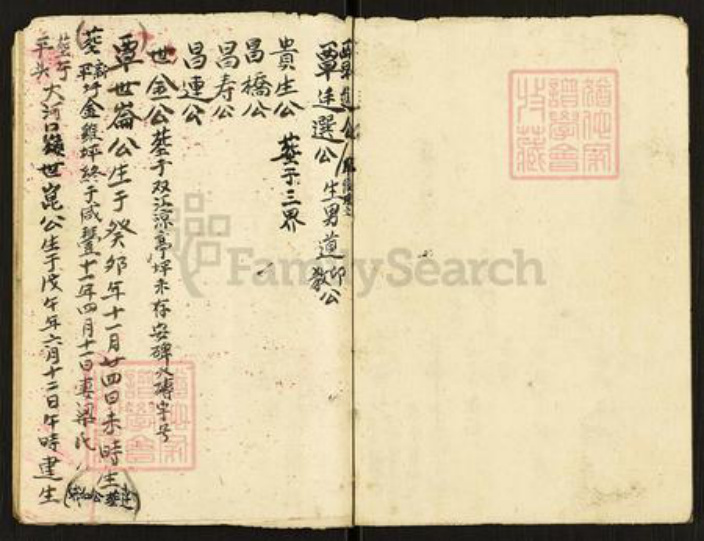 覃廷選公生男道印教公
貴生公 葬于三界
昌橋公
昌寿公
昌連公
世金公葬于双江涼亭坪未存安碑火磚字号
覃世崙公生于癸夘年十一月廿四日未時生
葬平圩金雞坪終于咸豐十一年四月十一日妻梁氏
葬于平头大河口
世崑公生于戊午年六月十二日午時建生
FamilySearch
譜學會
收藏